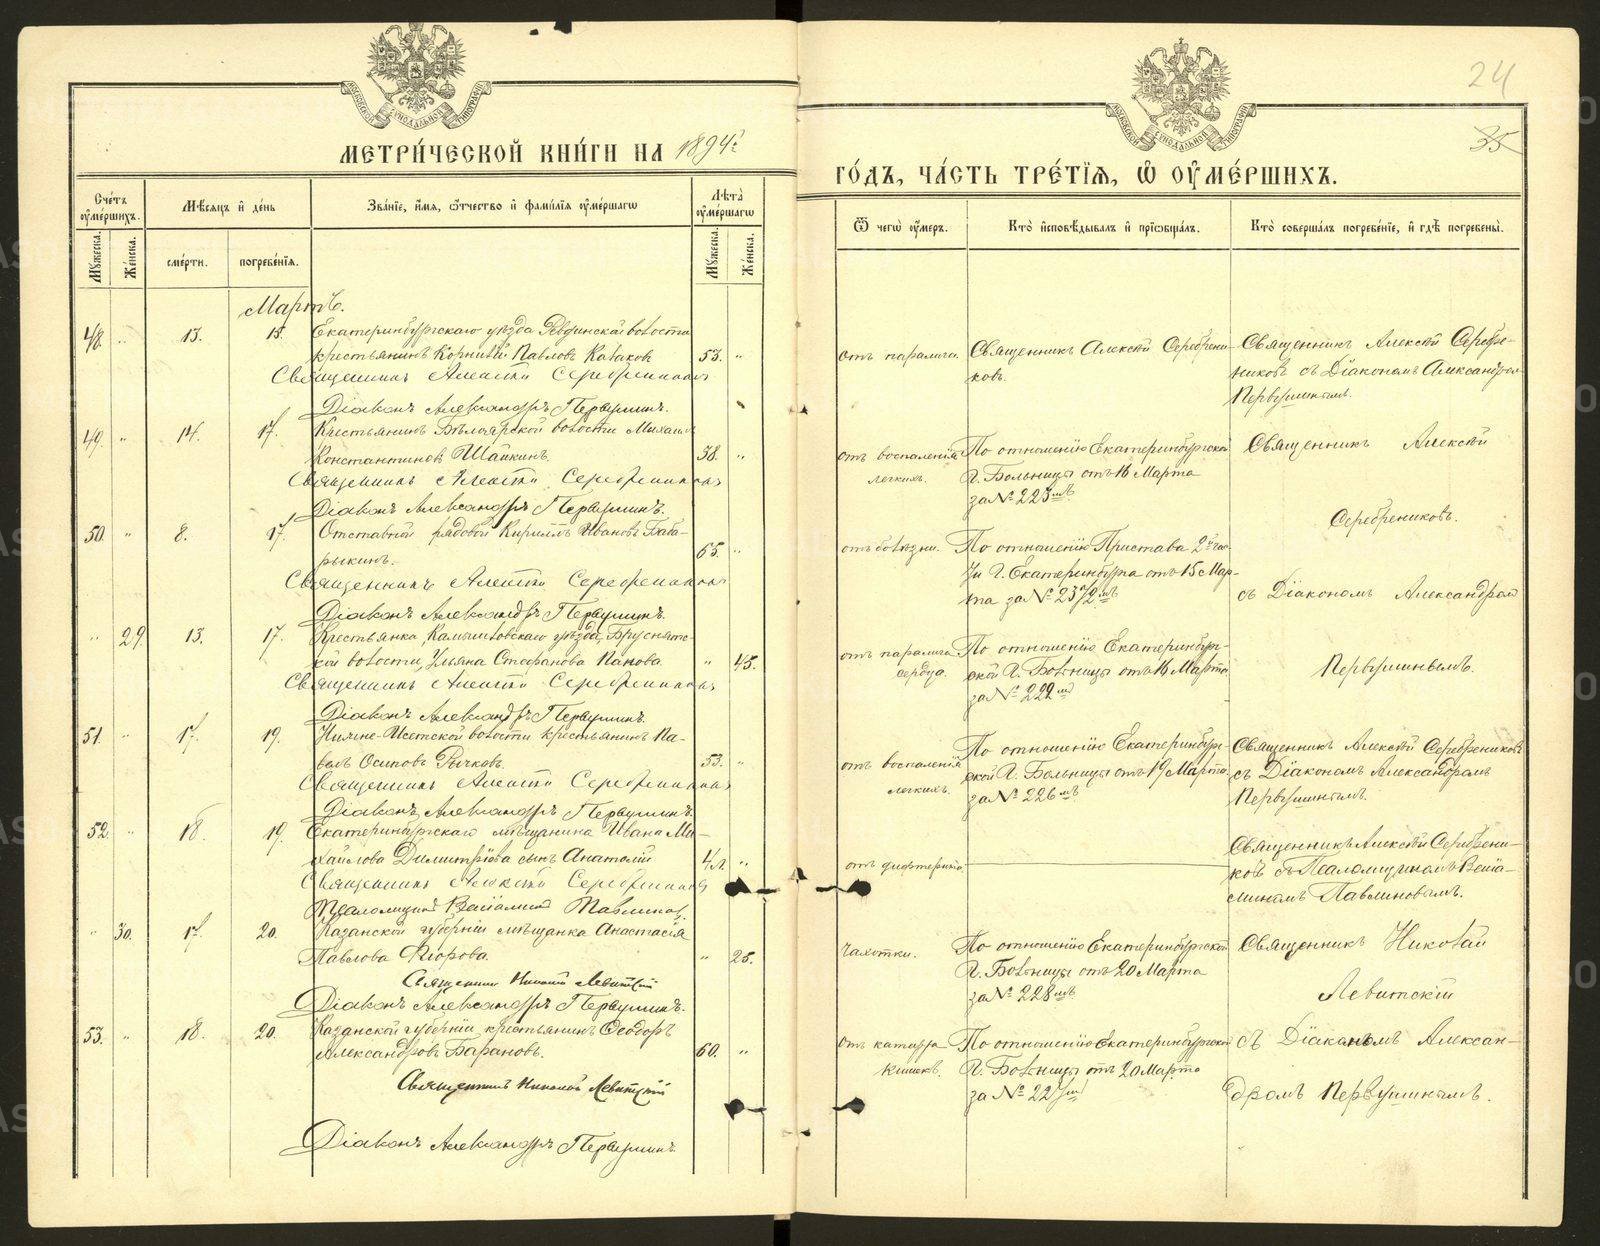 24
35
МОСКОВСКОЙ СѴНОДАЛЬНОЙ ТИПОГРАФІИ
МОСКОВСКОЙ СѴНОДАЛЬНОЙ ТИПОГРАФІИ
МЕТРИ́ЧЕСКОЙ КНИ́ГИ НА 1894й
ГО́ДЪ, ЧА́СТЬ ТРЕ́ТЇѦ, Ѽ ОУ҆МЕ́РШИХЪ.
Сче́тъ оу҆ме́ршихъ.
Мꙋжеска.
Же́нска.
Мѣ́сѧцъ и҆ де́нь
сме́рти.
погребе́нїѧ.
Зва́нїе, и҆́мѧ, ѻ҆́тчество и҆ фамі́лїѧ оу҆ме́ршагѡ
Лѣ̑та̀ оу҆ме́ршагѡ
Мꙋжеска.
Же́нска.
Ѿ чегѡ̀ оу҆́меръ.
Кто̀ и҆сповѣ́дывалъ и҆ прїѡбща́лъ.
Кто̀ соверша́лъ погребе́нїе, и҆ гдѣ̀ погребены̀.
Мартъ.
48. " 13. 15. Екатеринбургскаго уѣзда Ревдинской волости
крестьянинъ Корнилій Павловъ Казаковъ 53. "
Священникъ Алексій Серебрениковъ
Діаконъ Александръ Первушинъ.
отъ паралича.
Священникъ Алексій Серебрени-
ковъ.
Священникъ Алексій Серебре-
никовъ съ Діакономъ Александромъ
Первушинымъ.
49. " 14. 17. Крестьянинъ Бѣлоярской волости Михаилъ
Константиновъ Шайкинъ. 38. "
Священникъ Алексій Серебрениковъ
Діаконъ Александръ Первушинъ.
отъ воспаленія
легкихъ.
По отношенію Екатеринбургской
Г. Больницы отъ 16 Марта
за № 223мъ
Священникъ Алексій
Серебрениковъ.
50. " 8. 17. Отставной рядовой Кириллъ Ивановъ Баба-
рыкинъ. 65. "
Священникъ Алексій Серебрениковъ
Діаконъ Александръ Первушинъ.
отъ болѣзни.
По отношенію Пристава 2й час-
ти Г. Екатеринбурга отъ 15 Мар-
та за № 2372мъ
съ Діакономъ Александромъ
" 29. 13. 17. Крестьянка, Камышловскаго уѣзда, Бруснятс-
кой волости, Ульяна Стефанова Панова. " 45.
Священникъ Алексій Серебрениковъ
Діаконъ Александръ Первушинъ.
отъ паралича
сердца.
По отношенію Екатеринбург-
ской Г. Больницы отъ 16 Марта
за № 222мъ
Первушинымъ.
51. " 17. 19. Нижне-Исетской волости крестьянинъ Па-
велъ Осиповъ Рычковъ. 53. "
Священникъ Алексій Серебрениковъ
Діаконъ Александръ Первушинъ.
отъ воспаленія
легкихъ.
По отношенію Екатеринбург-
ской Г. Больницы отъ 19 Марта
за № 226мъ
Священникъ Алексій Серебрениковъ
съ Діакономъ Александромъ
Первушинымъ.
52. " 18. 19. Екатеринбургскаго мѣщанина Ивана Ми-
хайлова Димитріева сынъ Анатолій 4 л. "
Священникъ Алексій Серебрениковъ
Псаломщикъ Веніаминъ Павлиновъ.
отъ дифтерита
Священникъ Алексій Серебрени-
ковъ съ Псаломщикомъ Веніа-
миномъ Павлиновымъ.
" 30. 17. 20. Казанской губерніи мѣщанка Анастасія
Павлова Егорова. " 25.
Священникъ Николай Левитскій
Діаконъ Александръ Первушинъ.
Чахотки.
По отношенію Екатеринбургской
Г. Больницы отъ 20 Марта
за № 228мъ
Священникъ Николай
Левитскій
53. " 18. 20. Казанской губерніи, крестьянинъ Ѳеодоръ
Александровъ Барановъ. 60. "
Священникъ Николай Левитскій
Діаконъ Александръ Первушинъ.
отъ катарра
кишекъ.
По отношенію Екатеринбургской
Г. Больницы отъ 20 Марта
за № 227мъ
съ Діакономъ Алексан-
дромъ Первушинымъ.